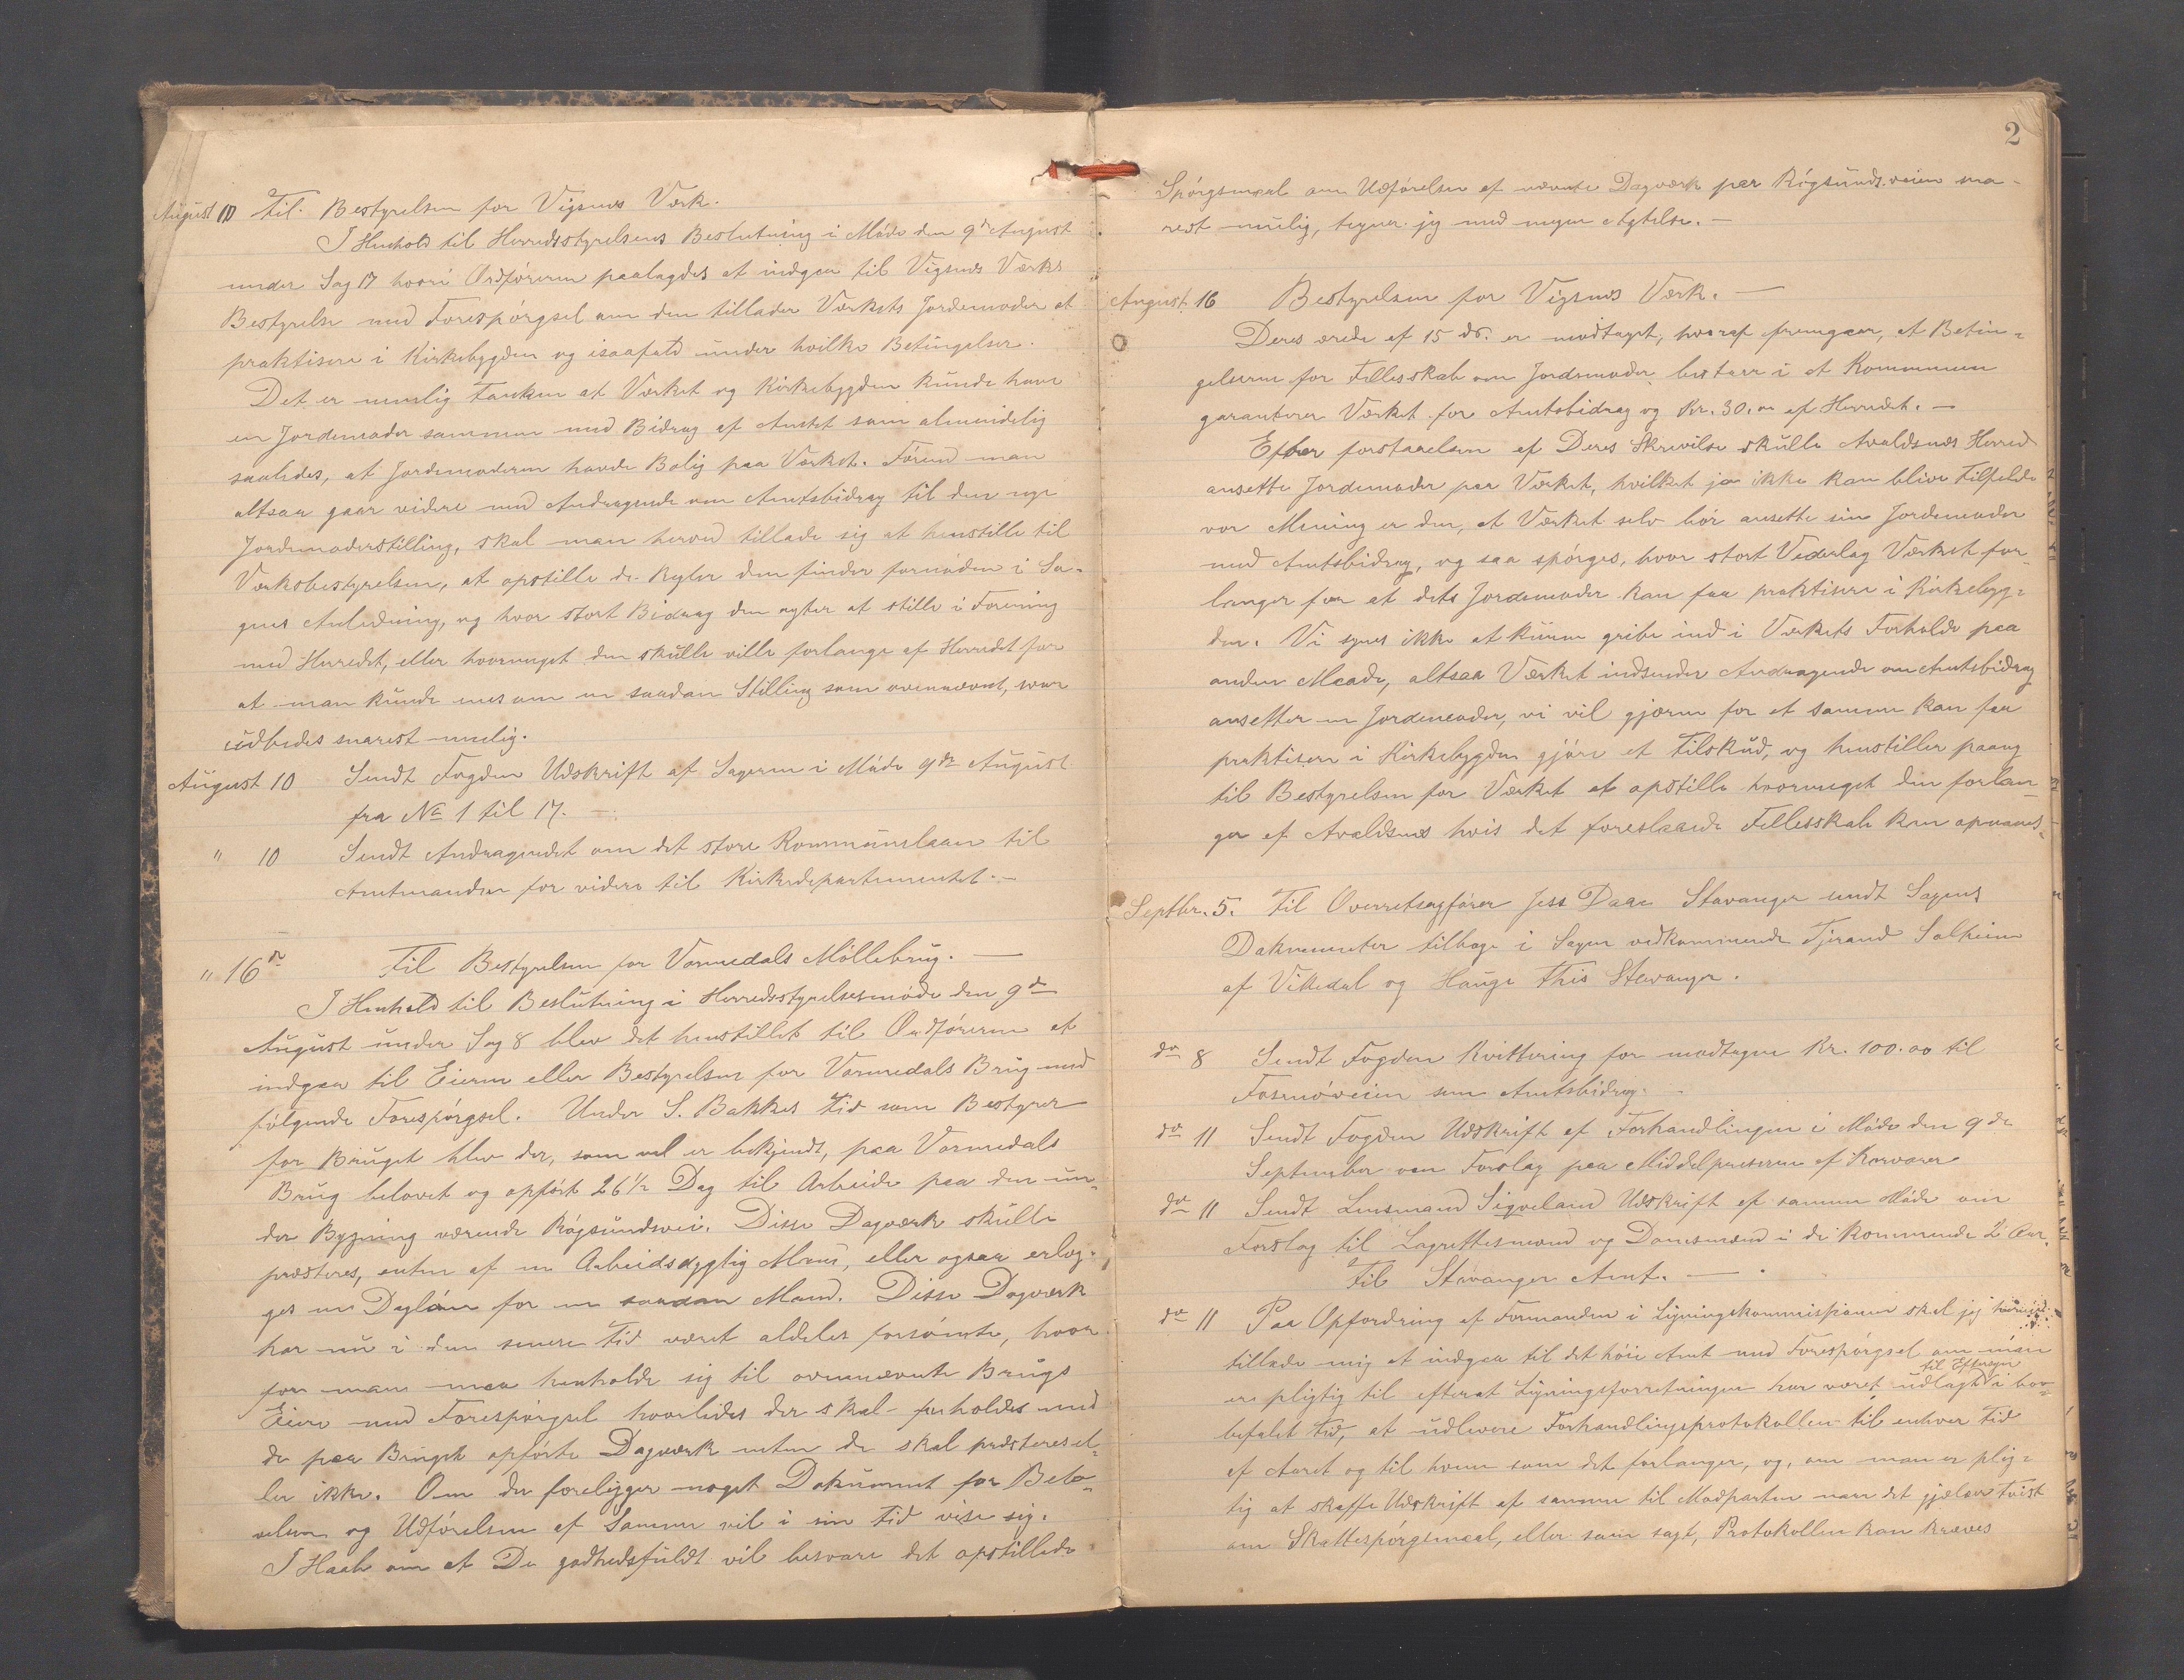 August 10 Til Bestyrelsen for Vigsnes Værk.
I Henhold til Herredsstyrelsens Beslutning i Möde den 9de August
under Sag 17 hvori Ordföreren paalagdes at indgaa til Vigsnes Værks
Bestyrelse med Forespörgsel om den tillader Værkets Jordemoder at
praktisere i Kirkebygden og isaafald under hvilke Betingelser.
Det er nemlig Tanken at Værket og Kirkebygden kunde have
en Jordemoder sammen med Bidrag af Amtet som almindelig
saaledes, at Jordemoderen havde Bolig paa Værket. Förend man
altsaa gaar videre med Andragende om Amtsbidrag til den nye
Jordemoderstilling, skal man herved tillade sig at henstille til
Værksbestyrelsen, at opstille de Regler den finder fornöden i Sa-
gens Anledning, og hvor stort Bidrag den agter at stille i Forening
med Herredet, eller hvormeget den skulle ville forlange af Herredet for
at man kunde enes om en saadan Stilling som ovennævnt, svar
udbedes snarest mulig.
August 10 Sendt Fogden Udskrift af Sagerne i Möde 9de August
fra No 1 til 17.
" 10 Sendt Andragendet om det store Kommunelaan til
Amtmanden for videre til Kirkedepartementet.-
" 16de Til Bestyrelsen for Vormedals Möllebrug. -
I Henhold til Beslutning i Herredsstyrelsesmöde den 9de
August under Sag 8 blev det henstillet til Ordföreren at
indgaa til Eieren eller Bestyrelsen for Vormedals Brug med
fölgende Forespörgsel. Under S. Bakkes Tid som Bestyrer
for Bruget blev der, som vel er bekjendt, paa Vormedals
Brug belovet og opfört 26½ Dag til Arbeide paa den un-
der Bygning værende Rögsundsvei. Disse Dagværk skulle
præsteres, enten af en Arbeidsdygtig Mand, eller ogsaa erlæg-
ges en Daglön for en saadan Mand. Disse Dagværk
har nu i den senere Tid været aldeles forsömte, hvor-
for man maa henholde sig til ovennævnte Brugs
Eiere med Forespörgsel hvorledes der skal forholdes med
de paa Bruget opförte Dagværk enten de skal præsteres el-
ler ikke. Om der foreligger noget Dokument for Belo-
velsen og Udförelsen af Samme vil i sin Tid vise sig.
I Haab om at De godhedsfuldt vil besvare det opstillede
2
Spörgsmaal om Udförelsen af nævnte Dagværk paa Rögsundsveien sna-
rest mulig, tegner jeg med megen Agtelse. -
August 16 Bestyrelsen for Vigsnes Værk. -
Deres ærede af 15 ds. er modtaget, hvoraf fremgaar, at Betin-
gelserne for Fellesskab om Jordemoder bestaar i at Kommunen
garanterer Værket for Amtsbidrag og Kr. 30.00 af Herredet. -
Efter forstaaelsen af Deres Skrivelse skulle Avaldsnes Herred
ansette Jordemoder paa Værket, hvilket jo ikke kan blive Tilfelde
vor Mening er den, at Værket selv bör ansette sin Jordemoder
med Amtsbidrag, og saa spörges, hvor stort Vederlag Værket for-
langer for at dets Jordemoder kan faa praktisere i Kirkebyg-
den. Vi synes ikke at kunne gribe ind i Værkets Forholde paa
anden Maade, altsaa Værket indsender Andragende om Amtsbidrag
ansetter en Jordemoder, vi vil gjerne for at samme kan faa
praktisere i Kirkebygden gjöre et Tilskud, og henstiller paany
til Bestyrelsen for Værket at opstille hvormeget den forlan-
ger af Avaldsnes hvis det foreslaaede Fellesskab kan opnaaes.
Septbr. 5. Til Overretsagförer Jess Daae Stavanger sendt Sagens
Dokumenter tilbage i Sagen vedkommende Tjerand Solheim
af Vikedal og Hauge This Stavanger.
do 8 Sendt Fogden Kvittering for modtagne Kr. 100.00 til
Fosenöveien som Amtsbidrag.
do 11 Sendt Fogden Udskrift af Forhandlingen i Möde den 9de
September om Forslag paa Middelpriserne af Kornvarer
do 11 Sendt Lensmand Sigveland Udskrift af samme Möde om
Forslag til Lagrettesmænd og Domsmænd i de kommende 2 Aar.
Til Stavanger Amt. -
do 11 Paa Opfordring af Formanden i Ligningskommissionen skal jeg herved
tillade mig at indgaa til det höie Amt med Forespörgsel om man
er pligtig til efterat Ligningsforretningen har været til Eftersyn udlagt i bov-
befalet Tid, at udlevere Forhandlingsprotokollen til enhver Tid
af Aaret og til hvem som det forlanger, og, om man er plig-
tig at skaffe Udskrift af samme til Modparten naar det gjælder Tvist
om Skattespörgsmaal, eller som sagt, Protokollen kan kræves